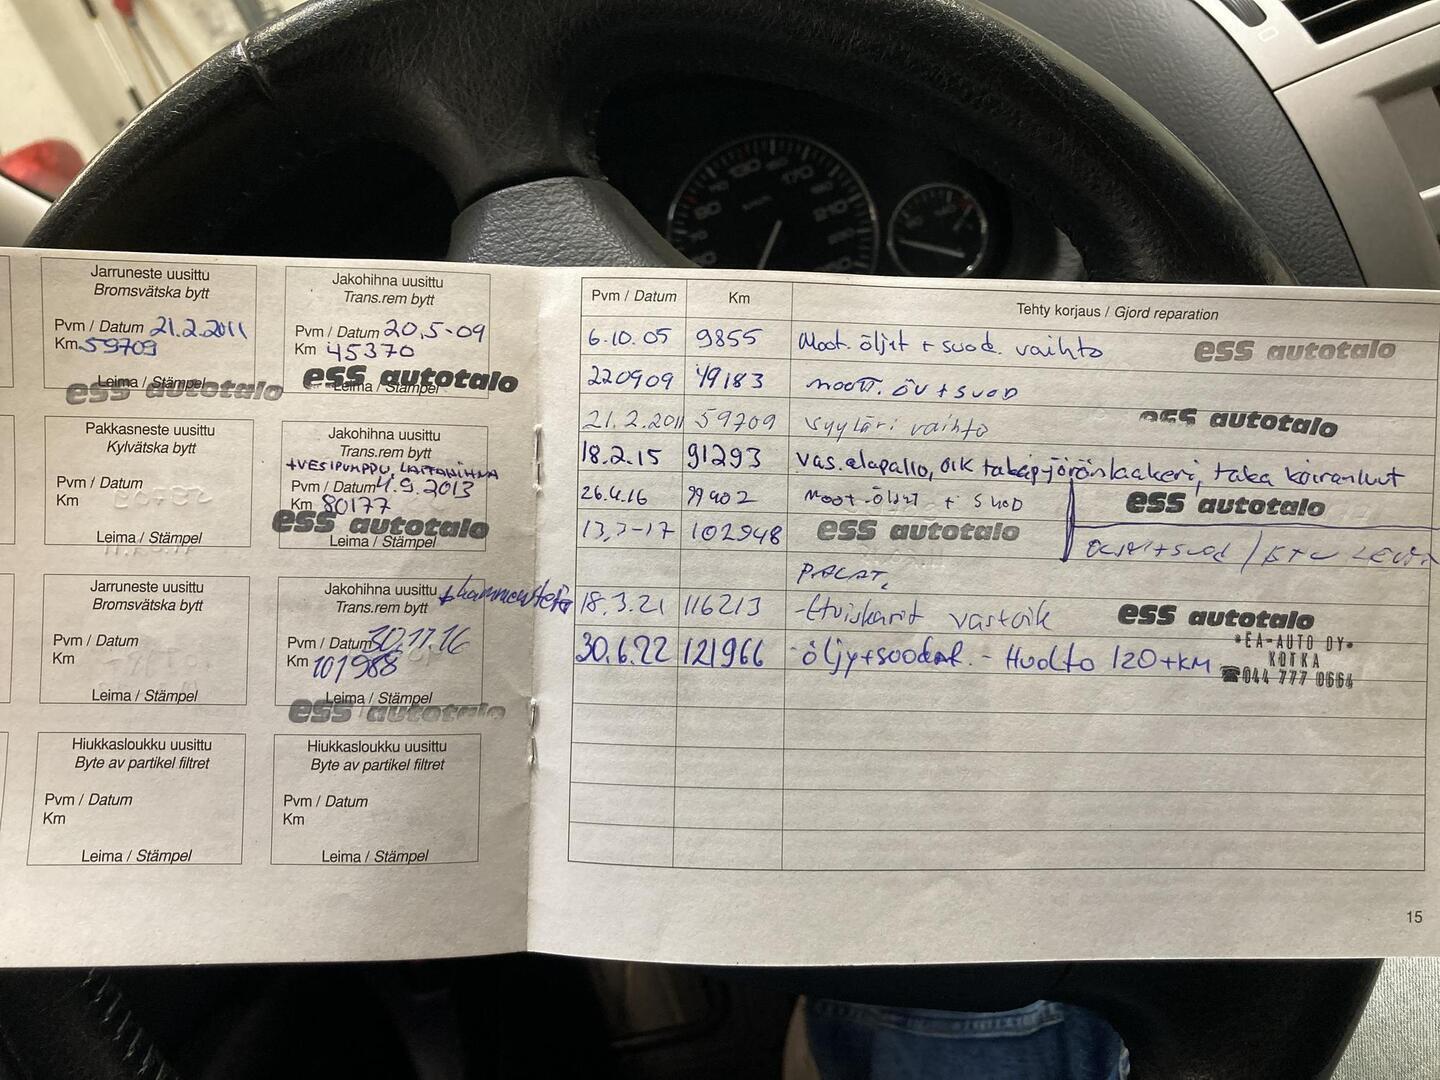 Jarruneste uusittu
Bromsvätska bytt
Pvm / Datum 21.2.2011
Km 59709
Leima / Stämpel
ess autotalo
Jakohihna uusittu
Trans.rem bytt
Pvm / Datum 20.5-09
Km 45370
Leima / Stämpel
ess autotalo
Pakkasneste uusittu
Kylvätska bytt
Pvm / Datum
Km
Leima / Stämpel
Jakohihna uusittu
Trans.rem bytt
+VESIPUMPPU, LAITAHIHNA
Pvm / Datum 4.9.2013
Km 80177
ess autotalo
Leima / Stämpel
Jarruneste uusittu
Bromsvätska bytt
Pvm / Datum
Km
Leima / Stämpel
Jakohihna uusittu
Trans.rem bytt
Pvm / Datum 30.11.16
Km 101988
Leima / Stämpel
ess autotalo
Hiukkasloukku uusittu
Byte av partikel filtret
Pvm / Datum
Km
Leima / Stämpel
Hiukkasloukku uusittu
Byte av partikel filtret
Pvm / Datum
Km
Leima / Stämpel
Pvm / Datum Km Tehty korjaus / Gjord reparation
6.10.05 9855 Moot. öljyt + suod. vaihto ess autotalo
220909 49183 moott. öv + suod
21.2.2011 59709 vaihto ess autotalo
18.2.15 91293 vas.alapallo, oik takapyöränlaakeri, taka koiranluut
26.4.16 99402 moot-öljyt + suod ess autotalo
102948 ess autotalo
PALAT.
18.3.21 116213 -Etuiskarit vas+oik ess autotalo
30.6.22 121966 -öljy+suodat. - Huolto 120+KM
*EA-AUTO OY*
KOTKA
☎044 777 0664
15